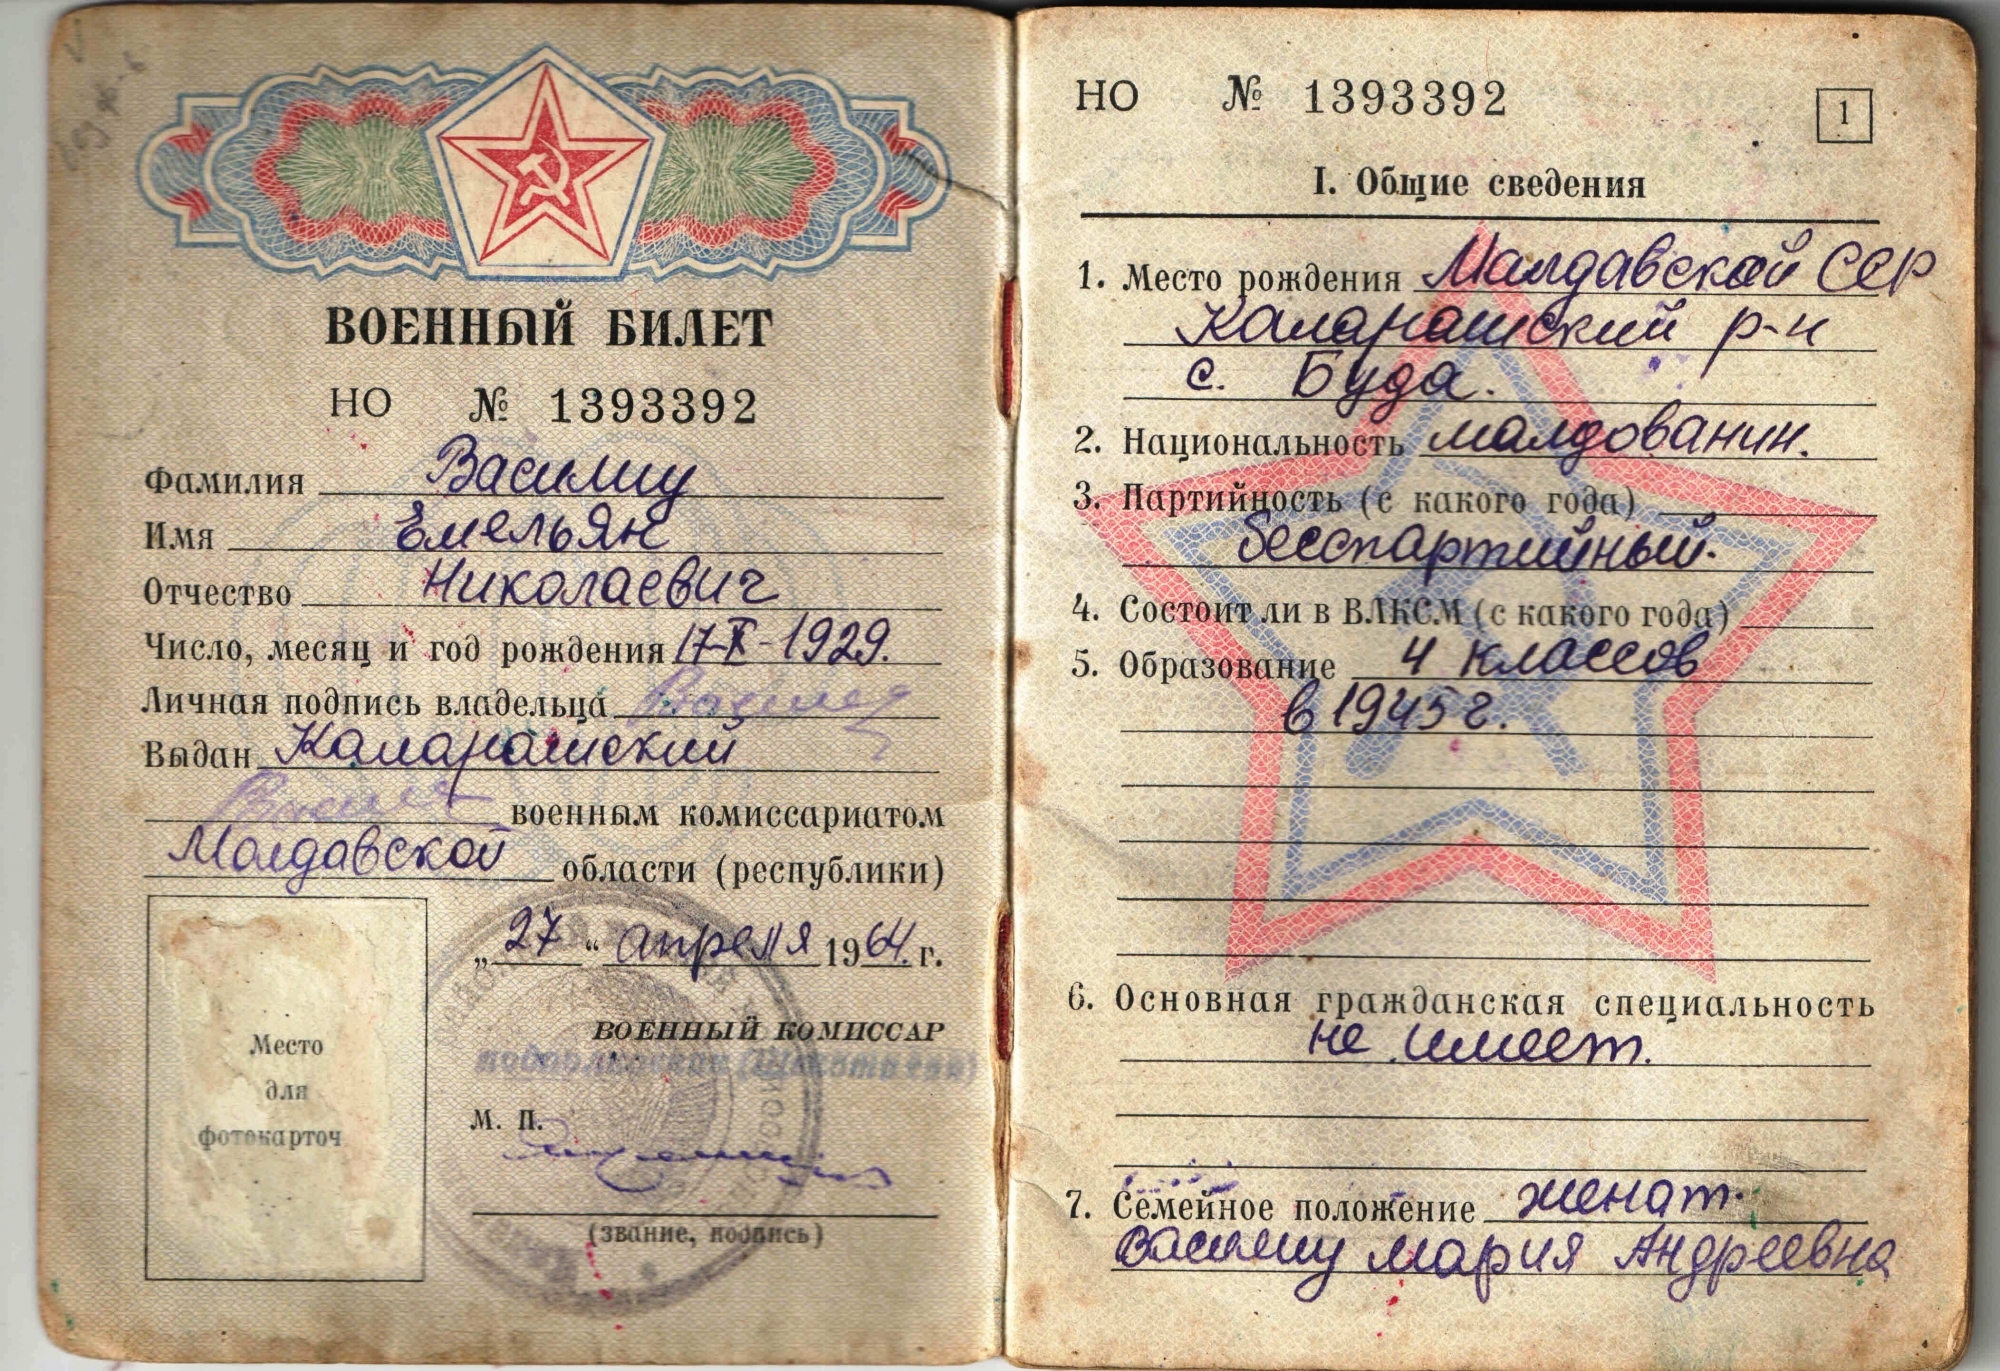 ВОЕННЫЙ БИЛЕТ
НО № 1393392
Фамилия Василиу
Имя Емельян
Отчество Николаевич
Число, месяц и год рождения 17-X-1929.
Личная подпись владельца
Выдан Каларашский
военным комиссариатом
Молдавской области (республики)
„27“ апреля 1964. г.
ВОЕННЫЙ КОМИССАР
подполковник
М. П.
(звание, подпись)
Место
для
фотокарточ
НО № 1393392
1
I. Общие сведения
1. Место рождения Молдавской ССР
Каларашский р-н
с. Буда.
2. Национальность молдованин.
3. Партийность (с какого года)
беспартийный.
4. Состоит ли в ВЛКСМ (с какого года)
5. Образование 4 классов
в 1945 г.
6. Основная гражданская специальность
не имеет.
7. Семейное положение женат.
Василиу Мария Андреевна